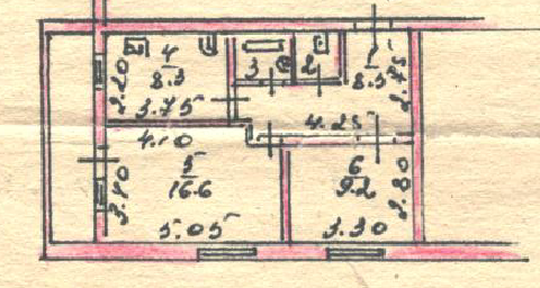 4
8.3
3.20
3.75
3
2
1
8.5
2.75
4.25
4.10
5
16.6
3.80
5.05
6
9.2
3.80
3.30